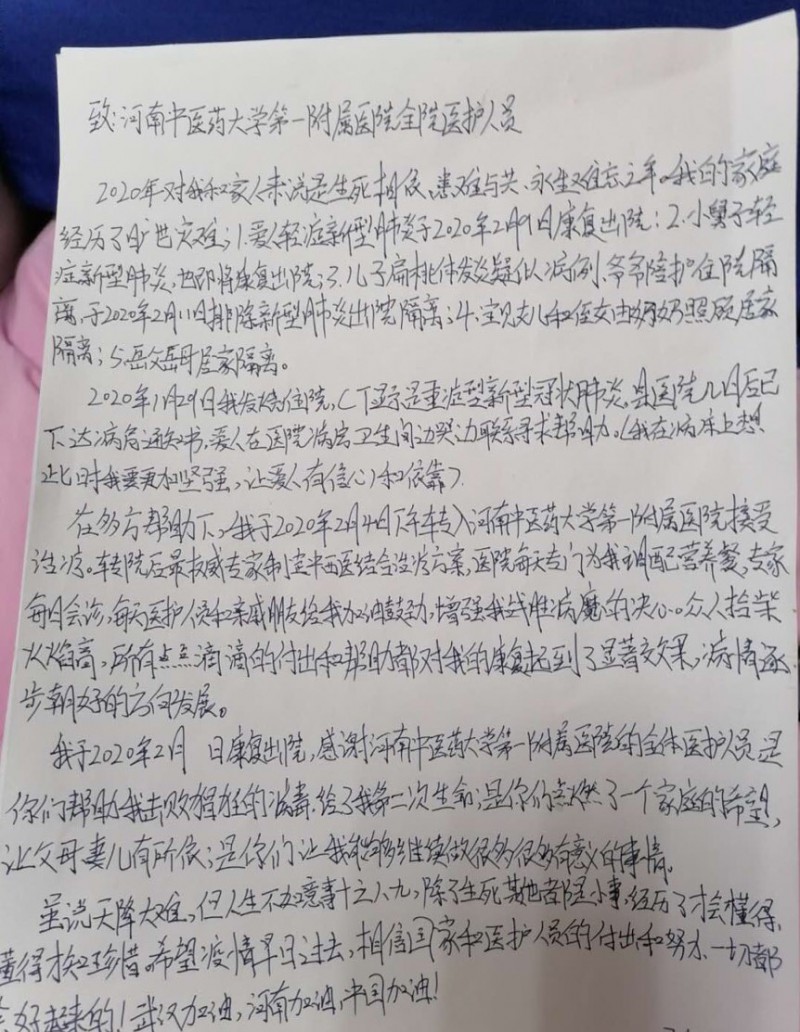 致:河南中医药大学第一附属医院全院医护人员
2020年对我和家人来说是生死相依、患难与共、永生难忘之年。我的家庭
经历了旷世灾难;1.爱人轻症新型肺炎于2020年2月9日康复出院;2.小舅子轻
症新型肺炎,也即将康复出院;3.儿子扁桃体发炎疑似病例,爷爷陪护住院隔
离,于2020年2月11日排除新型肺炎出院隔离;4.宝贝女儿和侄女由奶奶照顾居家
隔离;5.岳父岳母居家隔离。
2020年1月29日我发烧住院,CT显示是重症型新型冠状肺炎,县医院几日后已
下达病危通知书,爱人在医院病房卫生间边哭边联系寻求帮助。(我在病床上想
此时我要更加坚强,让爱人有信心和依靠)
在多方帮助下,我于2020年2月4日下午转入河南中医药大学第一附属医院接受
治疗。转院后最权威专家制定中西医结合治疗方案,医院每天专门为我调配营养餐,专家
每日会诊,每天医护人员和亲戚朋友给我加油鼓劲,增强我战胜病魔的决心。众人拾柴
火焰高,所有点点滴滴的付出和帮助都对我的康复起到了显著效果,病情逐
步朝好的方向发展。
我于2020年2月 日康复出院,感谢河南中医药大学第一附属医院的全体医护人员是
你们帮助我击败猖狂的病毒,给了我第二次生命;是你们点燃了一个家庭的希望,
让父母妻儿有所依;是你们让我能够继续做很多很多有意义的事情。
虽说天降大难,但人生不如意事十之八九,除了生死其他都是小事,经历了才会懂得,
懂得才知珍惜。希望疫情早日过去,相信国家和医护人员的付出和努力,一切都
会好起来的!武汉加油,河南加油,中国加油!